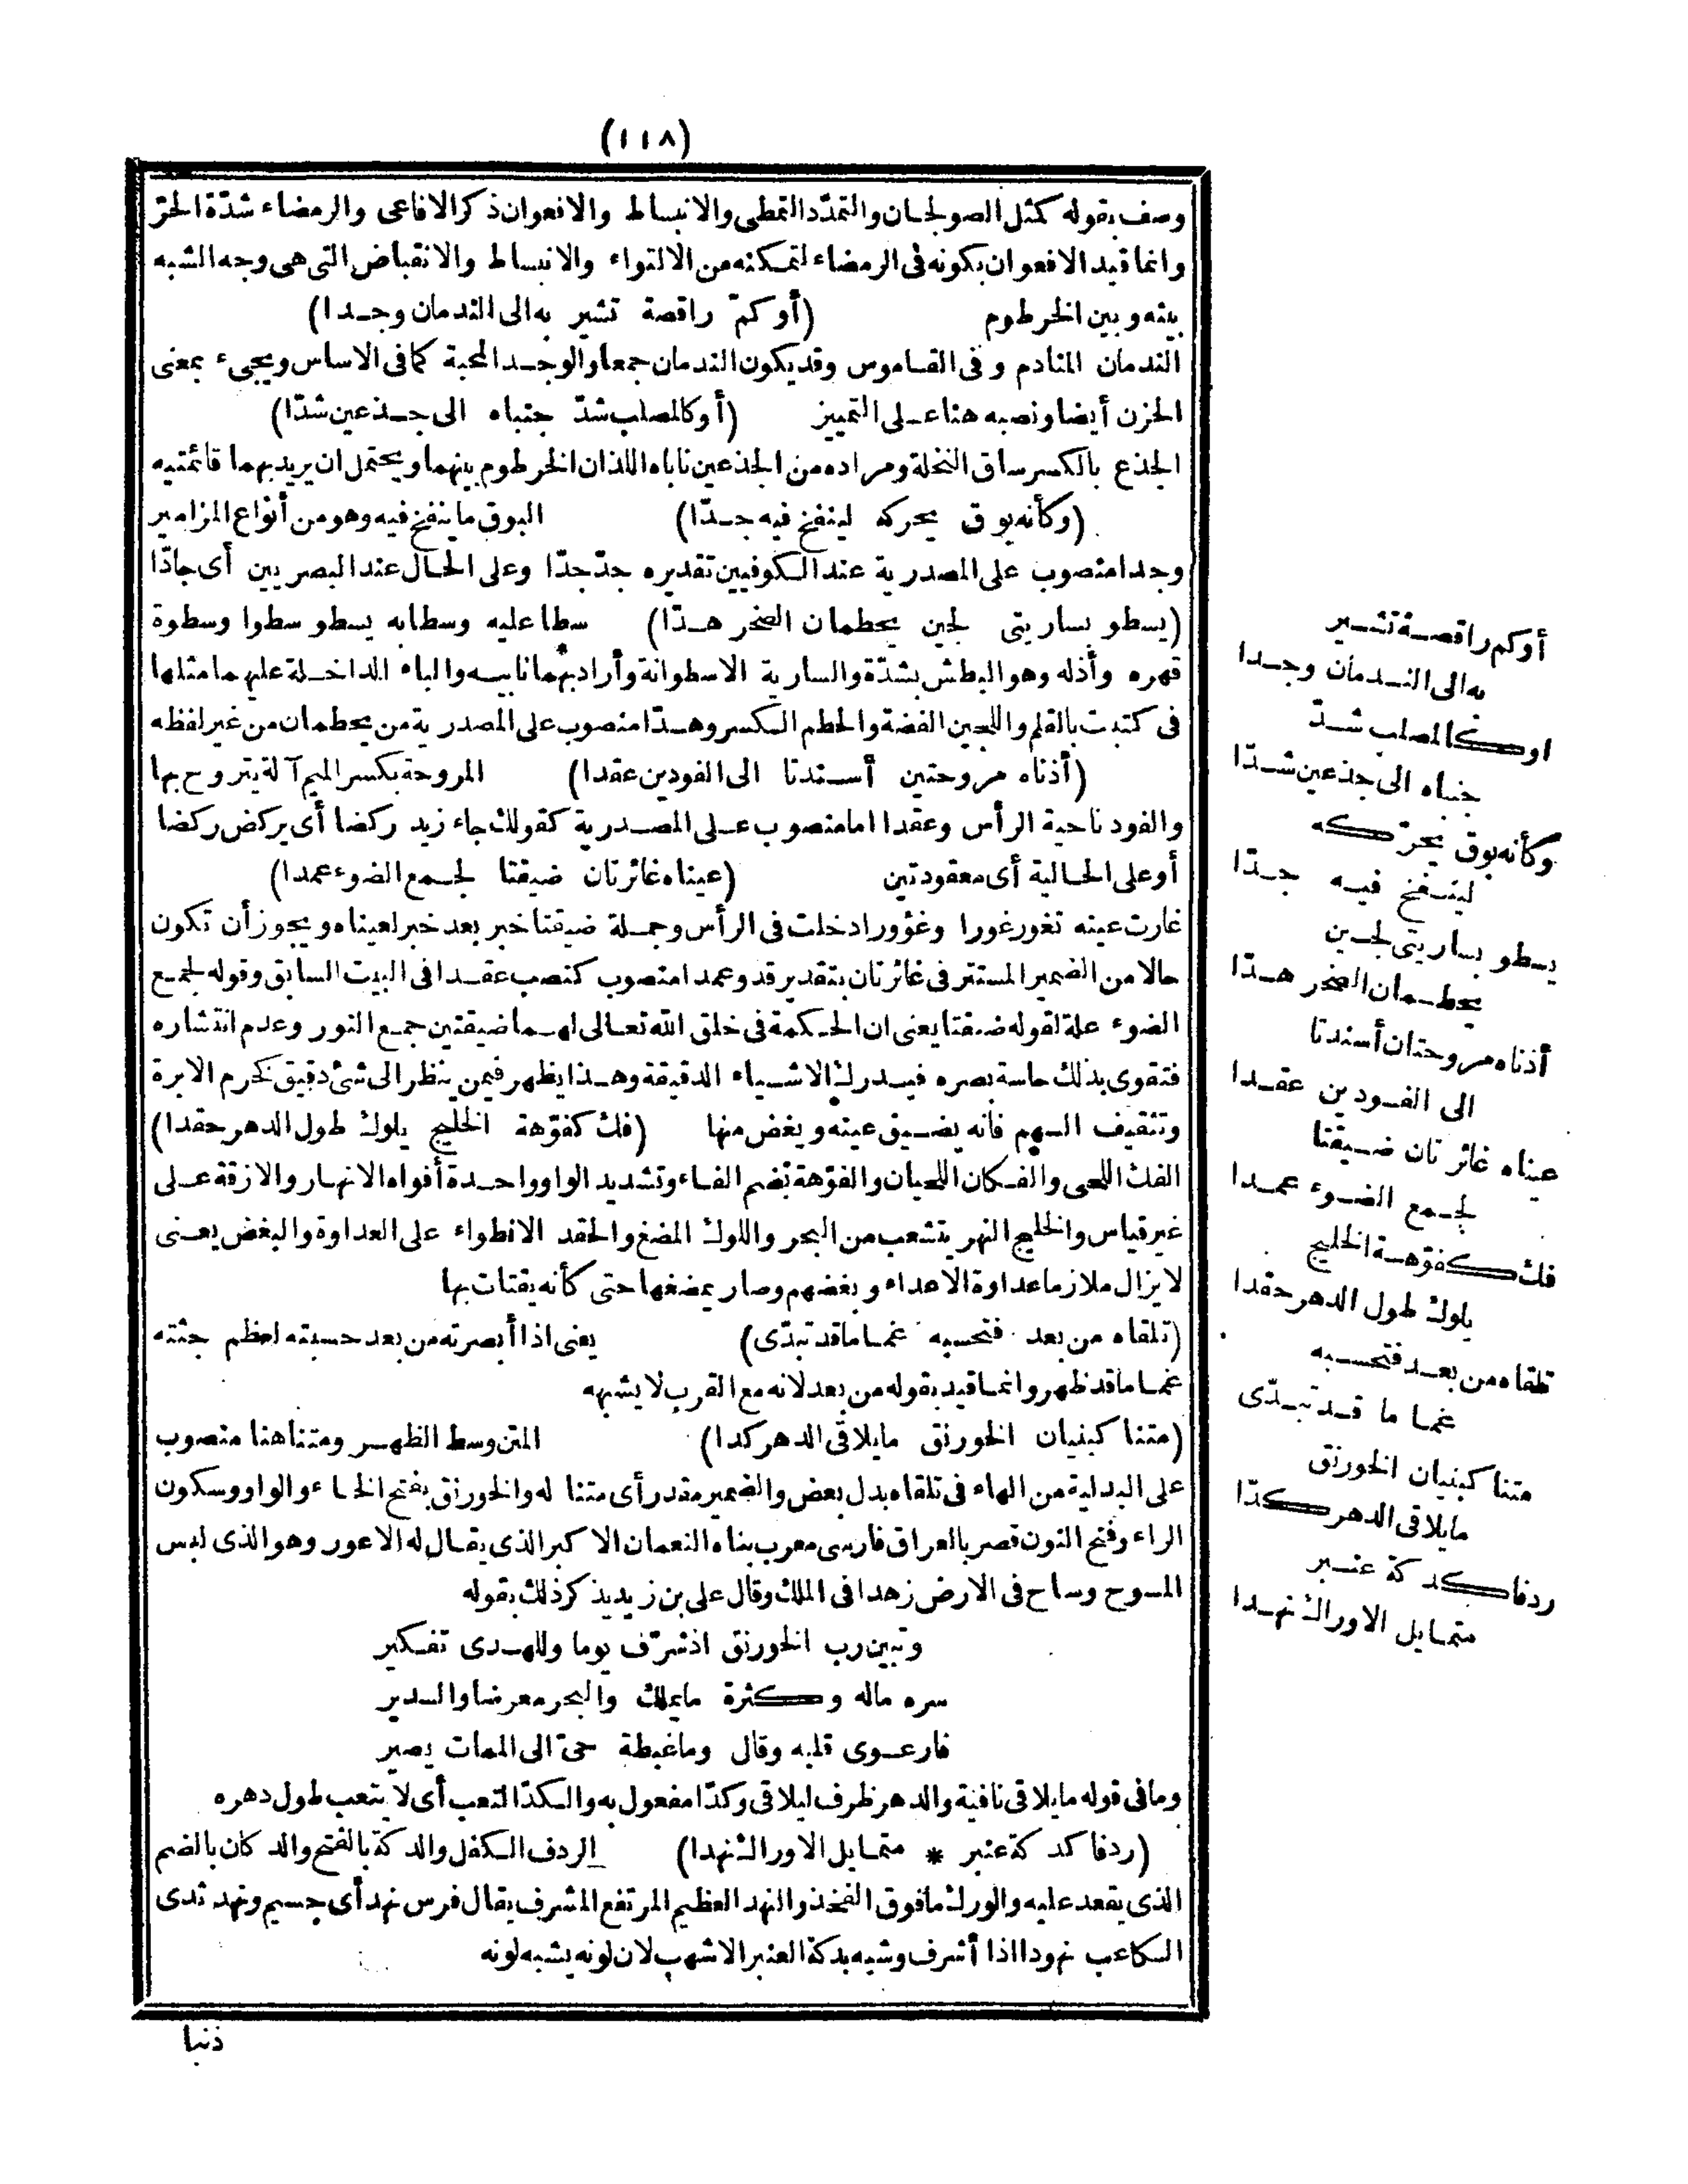 (١١٨)
وصف بقوله كمثل الصولجان والتمدّد التمطى والانبساط والافعوان ذكر الافاعى والرمضاء شدّة الحرّ
وانما قيد الافعوان بكونه فى الرمضاء لتمكنه من الالتواء والانبساط والانقباض التى هى وجه الشبه
بينه وبين الخرطوم (أو كمّ راقصة تشير به الى الندمان وجدا)
الندمان المنادم وفى القاموس وقد يكون الندمان جمعا والوجد المحبة كما فى الاساس ويجىء بمعنى
الحزن أيضا ونصبه هنا على التمييز (أو كالمصلب شدّ جنباه الى جذعين شدّا)
الجذع بالكسر ساق النخلة ومراده من الجذعين ناباه اللذان الخرطوم بينهما ويحتمل ان يريد بهما قائمتيه
(وكأنه بوق يحركه لينفخ فيه جدّا) البوق ما ينفخ فيه وهو من أنواع المزامير
وجدا منصوب على المصدرية عند الكوفيين تقديره جدّ جدّا وعلى الحال عند البصريين أى جادّا
(يسطو بساريتى لجين يحطمان الصخر هدّا) سطا عليه وسطا به يسطو سطوا وسطوة
قهره وأذله وهو البطش بشدّة والسارية الاسطوانة وأراد بهما نابيه والباء الداخلة عليهما مثلها
فى كتبت بالقلم واللجين الفضة والحطم الكسر وهدّا منصوب على المصدرية من يحطمان من غير لفظه
(أذناه مروحتين أسندتا الى الفودين عقدا) المروحة بكسر الميم آلة يتروح بها
والفود ناحية الرأس وعقدا اما منصوب على المصدرية كقولك جاء زيد ركضا أى يركض ركضا
أو على الحالية أى معقودتين (عيناه غائرتان ضيقتا لجمع الضوء عمدا)
غارت عينه تغور غورا وغؤورا دخلت فى الرأس وجملة ضيقتا خبر بعد خبر لعيناه ويجوز أن تكون
حالا من الضمير المستتر فى غائرتان بتقدير قد وعمدا منصوب كنصب عقدا فى البيت السابق وقوله لجمع
الضوء علة لقوله ضيقتا يعنى ان الحكمة فى خلق الله تعالى لهما ضيقتين جمع النور وعدم انتشاره
فتقوى بذلك حاسة بصره فيدرك الاشياء الدقيقة وهذا يظهر فيمن ينظر الى شئ دقيق كخرم الابرة
وتثقيف السهم فانه يضيق عينه ويغض منها (فك كفوّهة الخليج يلوك طول الدهر حقدا)
الفك اللحى والفكان اللحيان والفوّهة بضم الفاء وتشديد الواو واحدة أفواه الانهار والازقة على
غير قياس والخليج النهر يتشعب من البحر واللوك المضغ والحقد الانطواء على العداوة والبغض يعنى
لا يزال ملازما عداوة الاعداء وبغضهم وصار يمضغها حتى كأنه يقتات بها
(تلقاه من بعد فتحسبه غماما قد تبدّى) يعنى اذا أبصرته من بعد حسبته لعظم جثته
غماما قد ظهر وانما قيد بقوله من بعد لانه مع القرب لا يشبهه
(متنا كبنيان الخورنق ما يلاقى الدهر كدا) المتن وسط الظهر ومتنا هنا منصوب
على البدلية من الهاء فى تلقاه بدل بعض والضمير مقدر أى متنا له والخورنق بفتح الخاء والواو وسكون
الراء وفتح النون قصر بالعراق فارسى معرب بناه النعمان الاكبر الذى يقال له الاعور وهو الذى لبس
المسوح وساح فى الارض زهدا فى الملك وقال على بن زيد يذكر ذلك بقوله
وتبين رب الخورنق اذ شرّف يوما وللهدى تفكير
سره ماله وكثرة ما يملك والبحر معرضا والسدير
فارعوى قلبه وقال وما غبطة حىّ الى الممات يصير
وما فى قوله ما يلاقى نافية والدهر ظرف ليلاقى وكدّا مفعول به والكدّ التعب أى لا يتعب طول دهره
(ردفا كدكة عنبر * متمايل الاوراك نهدا) الردف الكفل والدكة بالفتح والدكان بالضم
الذى يقعد عليه والورك ما فوق الفخذ والنهد العظيم المرتفع المشرف يقال فرس نهد أى جسيم ونهد ثدى
الكاعب نهودا اذا أشرف وشبه بدكة العنبر الاشهب لان لونه يشبه لونه
ذنبا
أو كم راقصة تشير
به الى الندمان وجدا
او كالمصلب شدّ
جنباه الى جذعين شدّا
وكأنه بوق يحرّكه
لينفخ فيه جدّا
يسطو بساريتى لجين
يحطمان الصخر هدّا
أذناه مروحتان أسندتا
الى الفودين عقدا
عيناه غائرتان ضيقتا
لجمع الضوء عمدا
فك كفوّهة الخليج
يلوك طول الدهر حقدا
تلقاه من بعد فتحسبه
غماما قد تبدّى
متنا كبنيان الخورنق
ما يلاقى الدهر كدّا
ردفا كدكة عنبر
متمايل الاوراك نهدا